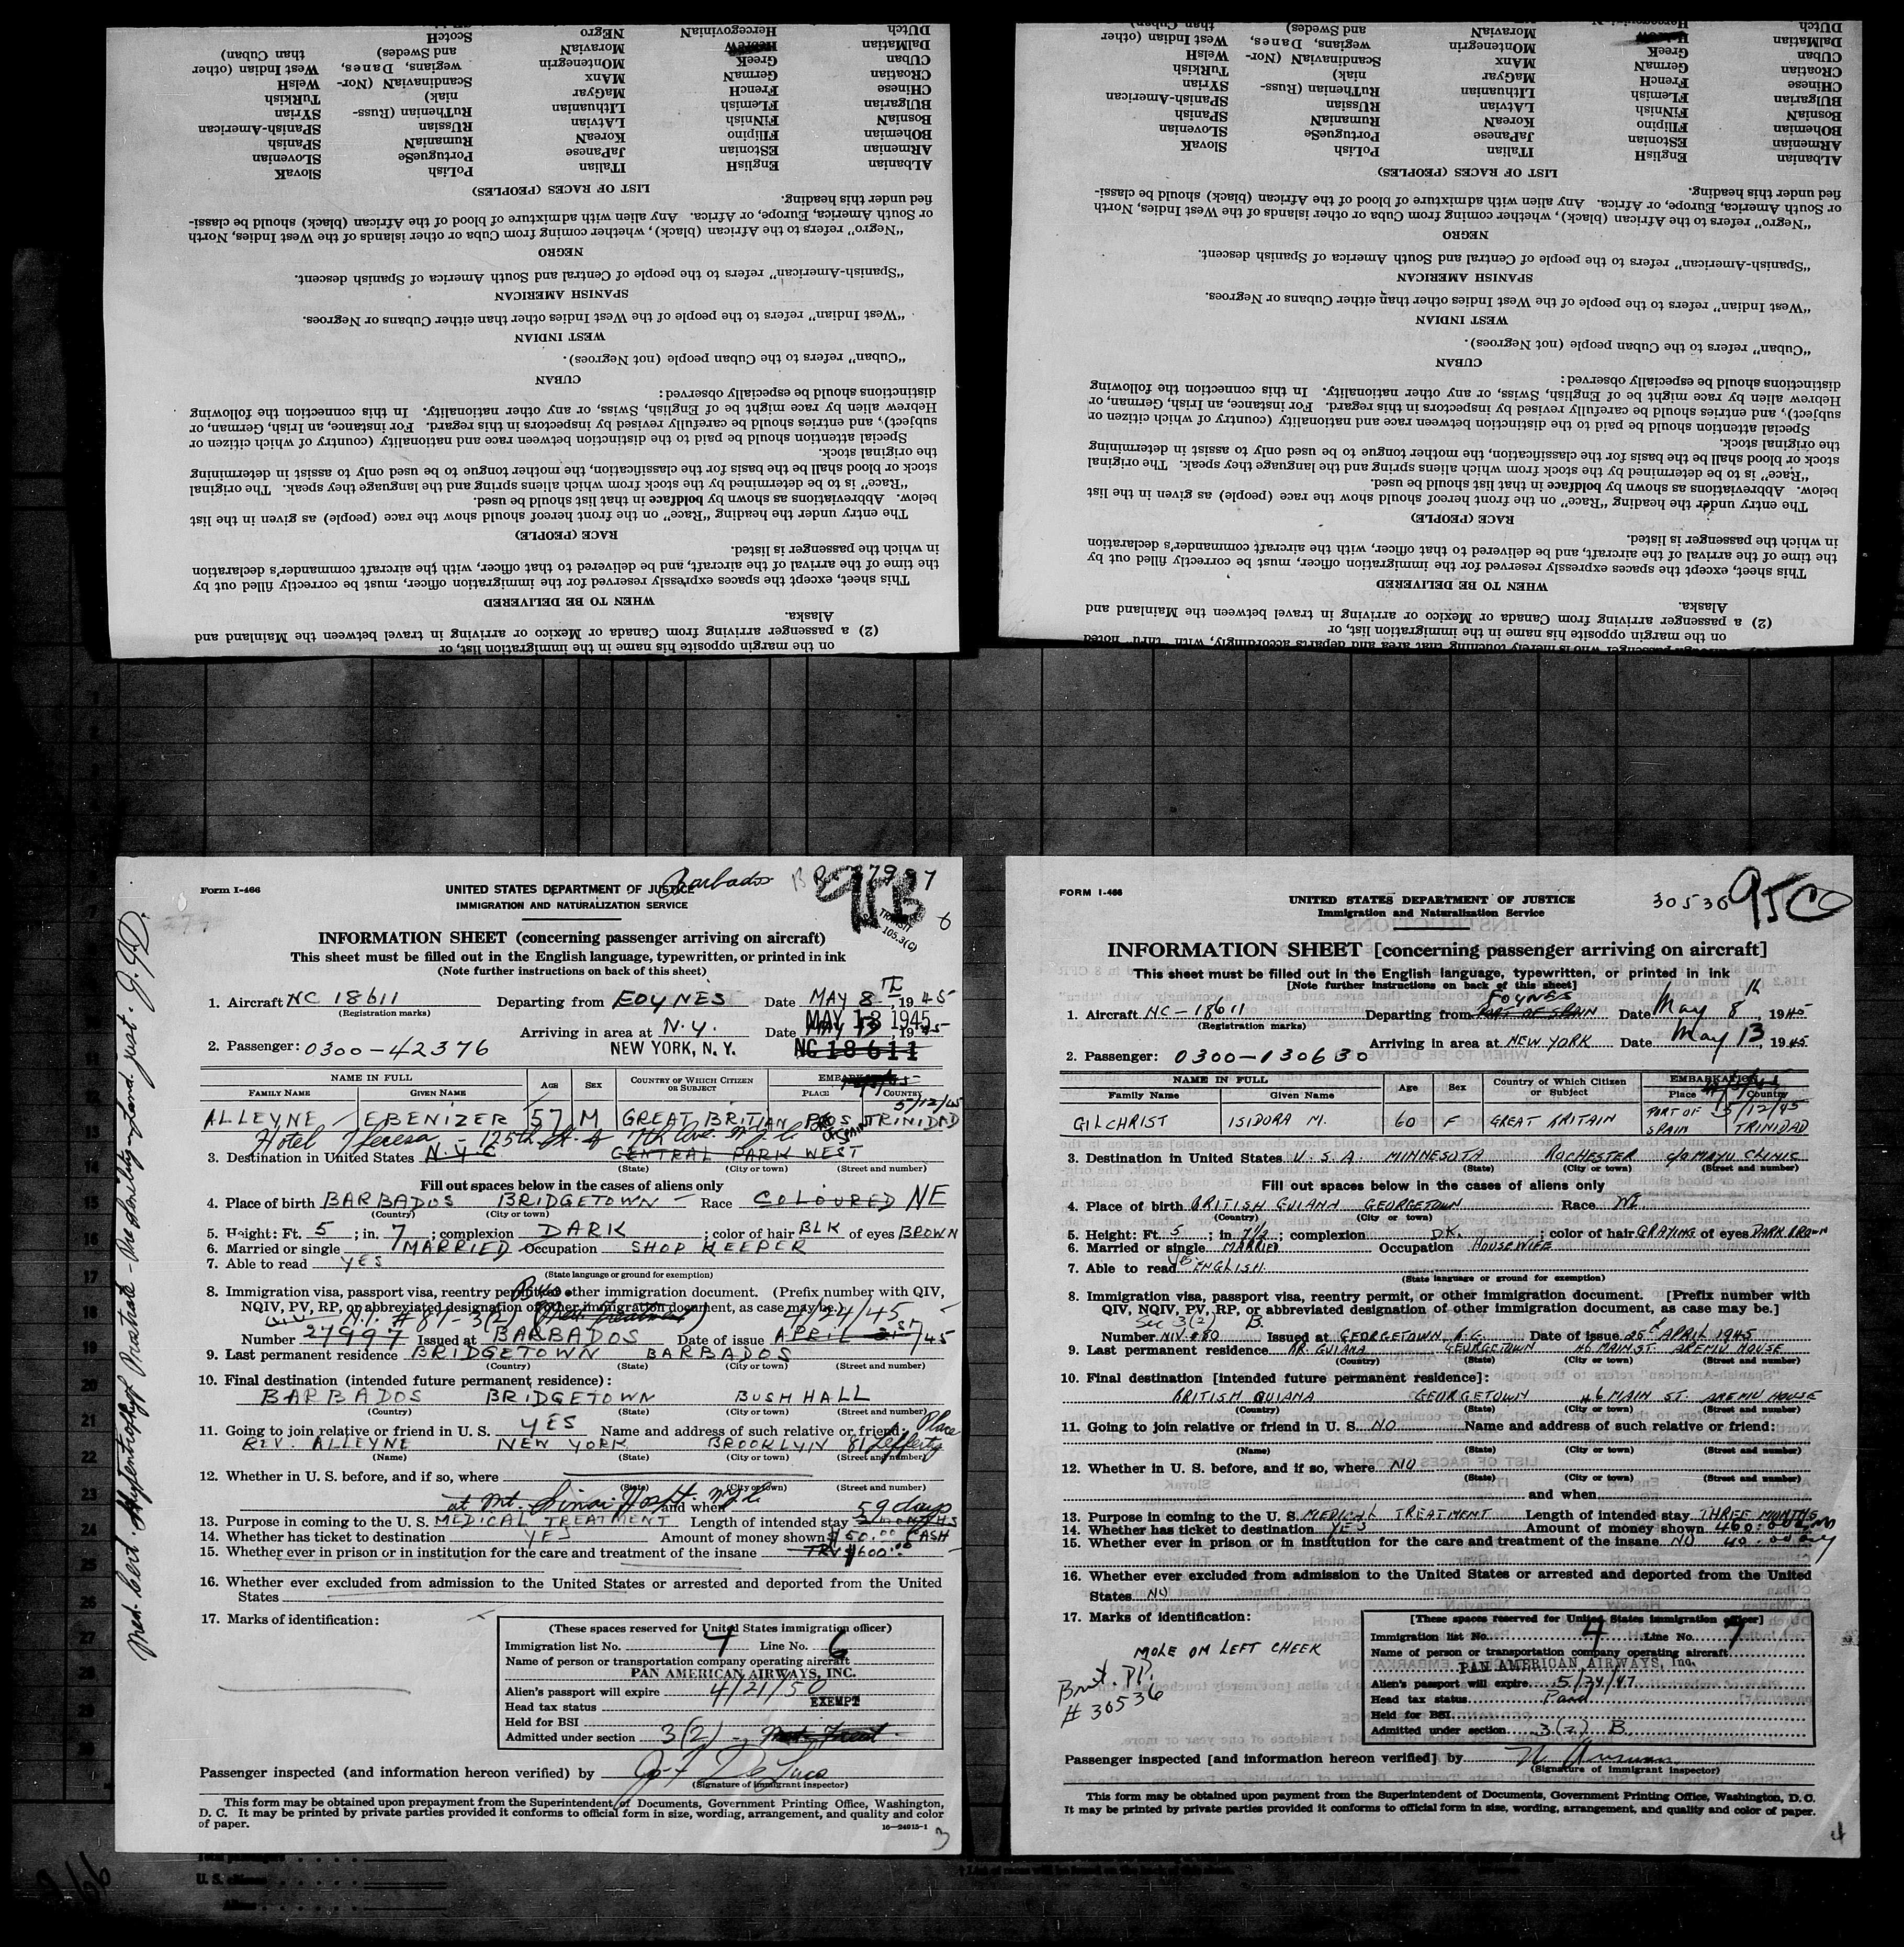 DUtch
HercegoviniaN
NEgro
ScotcH
DalMatian
HebreW
MoraviaN
and Swedes)
than Cuban)
CUban
GreeK
MOntenegrin
wegians, Danes,
West Indian (other
CRoatian
GermaN
MAnx
ScandinaviaN (Nor-
WelsH
CHinese
FrencH
MaGyar
niak)
TuRkish
BUlgarian
FLemish
LIthuanian
RuThenian (Russ-
SYrian
BOsniaN
FiNnish
LAtvian
RUssian
SPanish-American
BOhemian
FIlipino
KoreaN
RumaniaN
SPanish
ARmenian
EStonian
JaPanese
PortugueSe
SLovenian
ALbanian
EnglisH
ITalian
PoLish
SlovaK
LIST OF RACES (PEOPLES)
fied under this heading.
or South America, Europe, or Africa. Any alien with admixture of blood of the African (black) should be classi-
"Negro" refers to the African (black), whether coming from Cuba or other islands of the West Indies, North
NEGRO
"Spanish-American" refers to the people of Central and South America of Spanish descent.
SPANISH AMERICAN
"West Indian" refers to the people of the West Indies other than either Cubans or Negroes.
WEST INDIAN
"Cuban" refers to the Cuban people (not Negroes).
CUBAN
distinctions should be especially observed:
Hebrew alien by race might be of English, Swiss, or any other nationality. In this connection the following
subject), and entries should be carefully revised by inspectors in this regard. For instance, an Irish, German, or
Special attention should be paid to the distinction between race and nationality (country of which citizen or
the original stock.
stock or blood shall be the basis for the classification, the mother tongue to be used only to assist in determining
"Race" is to be determined by the stock from which aliens spring and the language they speak. The original
below. Abbreviations as shown by boldface in that list should be used.
The entry under the heading "Race" on the front hereof should show the race (people) as given in the list
RACE (PEOPLE)
in which the passenger is listed.
the time of the arrival of the aircraft, and be delivered to that officer, with the aircraft commander's declaration
This sheet, except the spaces expressly reserved for the immigration officer, must be correctly filled out by
WHEN TO BE DELIVERED
Alaska.
(2) a passenger arriving from Canada or Mexico or arriving in travel between the Mainland and
on the margin opposite his name in the immigration list, or
Form I-466
UNITED STATES DEPARTMENT OF JUSTICE
Barbados
IMMIGRATION AND NATURALIZATION SERVICE
TRANSIT
105.3(c)
INFORMATION SHEET (concerning passenger arriving on aircraft)
This sheet must be filled out in the English language, typewritten, or printed in ink
(Note further instructions on back of this sheet)
1. Aircraft NC 18611 Departing from FOYNES Date MAY 8TH, 1945
(Registration marks)
MAY 13 1945
Arriving in area at N.Y. Date MAY 13, 1945
2. Passenger: 0300-42376 NEW YORK, N. Y. NC 18611
NAME IN FULL
FAMILY NAME GIVEN NAME AGE SEX COUNTRY OF WHICH CITIZEN OR SUBJECT EMBARKATION PLACE COUNTRY
5/12/45
ALLEYNE EBENIZER 57 M GREAT BRITIAN POS TRINIDAD
Hotel Theresa - 125th St & 7th Ave. N.Y.C.
3. Destination in United States N.Y.C CENTRAL PARK WEST
(State) (City or town) (Street and number)
Fill out spaces below in the cases of aliens only
4. Place of birth BARBADOS BRIDGETOWN Race COLOURED NE
(Country) (City or town)
5. Height: Ft. 5; in. 7; complexion DARK; color of hair BLK of eyes BROWN
6. Married or single MARRIED Occupation SHOP KEEPER
7. Able to read YES
(State language or ground for exemption)
8. Immigration visa, passport visa, reentry permit, or other immigration document. (Prefix number with QIV,
NQIV, PV, RP, or abbreviated designation of other immigration document, as case may be.)
#87-3(2) 4/24/45
Number 27997 Issued at BARBADOS Date of issue APRIL 21ST/45
9. Last permanent residence BRIDGETOWN BARBADOS
(Country) (State) (City or town) (Street and number)
10. Final destination (intended future permanent residence):
BARBADOS BRIDGETOWN BUSH HALL
(Country) (State) (City or town) (Street and number)
11. Going to join relative or friend in U. S. YES Name and address of such relative or friend: Place
REV. ALLEYNE NEW YORK BROOKLYN 81 Lefferty
(Name) (State) (City or town) (Street and number)
12. Whether in U. S. before, and if so, where
(State) (City or town)
and when
at Mt. Sinai Hospt. N.Y.C. 59 days
13. Purpose in coming to the U. S. MEDICAL TREATMENT Length of intended stay 3 MONTHS
14. Whether has ticket to destination YES Amount of money shown $50.00 CASH
15. Whether ever in prison or in institution for the care and treatment of the insane TRV $600.00
16. Whether ever excluded from admission to the United States or arrested and deported from the United
States
17. Marks of identification:
(These spaces reserved for United States immigration officer)
Immigration list No. 4 Line No. 6
Name of person or transportation company operating aircraft
PAN AMERICAN AIRWAYS, INC.
Alien's passport will expire 4/21/50
Head tax status EXEMPT
Held for BSI
Admitted under section 3(2)
Passenger inspected (and information hereon verified) by
(Signature of immigrant inspector)
This form may be obtained upon prepayment from the Superintendent of Documents, Government Printing Office, Washington,
D. C. It may be printed by private parties provided it conforms to official form in size, wording, arrangement, and quality and color
of paper.
16—24915-1
3
DUtch
MoraviaN
and Swedes)
than Cuban)
DalMatian
HebreW
MOntenegrin
wegians, Danes,
West Indian (other
CUban
GreeK
MAnx
ScandinaviaN (Nor-
WelsH
CRoatian
GermaN
MaGyar
niak)
TuRkish
CHinese
FrencH
LIthuanian
RuThenian (Russ-
SYrian
BUlgarian
FLemish
LAtvian
RUssian
SPanish-American
BOsniaN
FiNnish
KoreaN
RumaniaN
SPanish
BOhemian
FIlipino
JaPanese
PortugueSe
SLovenian
ARmenian
EStonian
ITalian
PoLish
SlovaK
ALbanian
EnglisH
LIST OF RACES (PEOPLES)
fied under this heading.
or South America, Europe, or Africa. Any alien with admixture of blood of the African (black) should be classi-
"Negro" refers to the African (black), whether coming from Cuba or other islands of the West Indies, North
NEGRO
"Spanish-American" refers to the people of Central and South America of Spanish descent.
SPANISH AMERICAN
"West Indian" refers to the people of the West Indies other than either Cubans or Negroes.
WEST INDIAN
"Cuban" refers to the Cuban people (not Negroes).
CUBAN
distinctions should be especially observed:
Hebrew alien by race might be of English, Swiss, or any other nationality. In this connection the following
subject), and entries should be carefully revised by inspectors in this regard. For instance, an Irish, German, or
Special attention should be paid to the distinction between race and nationality (country of which citizen or
the original stock.
stock or blood shall be the basis for the classification, the mother tongue to be used only to assist in determining
"Race" is to be determined by the stock from which aliens spring and the language they speak. The original
below. Abbreviations as shown by boldface in that list should be used.
The entry under the heading "Race" on the front hereof should show the race (people) as given in the list
RACE (PEOPLE)
in which the passenger is listed.
the time of the arrival of the aircraft, and be delivered to that officer, with the aircraft commander's declaration
This sheet, except the spaces expressly reserved for the immigration officer, must be correctly filled out by
WHEN TO BE DELIVERED
Alaska.
(2) a passenger arriving from Canada or Mexico or arriving in travel between the Mainland and
on the margin opposite his name in the immigration list, or
passenger who is merely touching that area and departs accordingly, with "thru" noted
FORM I-466
UNITED STATES DEPARTMENT OF JUSTICE
30536 95C
Immigration and Naturalization Service
INFORMATION SHEET [concerning passenger arriving on aircraft]
This sheet must be filled out in the English language, typewritten, or printed in ink
[Note further instructions on back of this sheet]
FOYNES
1. Aircraft NC-18611 Departing from PORT OF SPAIN Date May 8th, 1945
(Registration marks)
Arriving in area at NEW YORK Date May 13, 1945
2. Passenger: 0300-130630
NAME IN FULL
Family Name Given Name Age Sex Country of Which Citizen or Subject EMBARKATION Place Country
5/12/45
GILCHRIST ISIDORA M. 60 F GREAT BRITAIN PORT OF SPAIN TRINIDAD
3. Destination in United States U.S.A. MINNESOTA ROCHESTER C/O MAYO CLINIC
(State) (City or town) (Street and number)
Fill out spaces below in the cases of aliens only
4. Place of birth BRITISH GUIANA GEORGETOWN Race NE.
(Country) (City or town)
5. Height: Ft. 5; in 7 1/2; complexion DK.; color of hair GRAYING of eyes DARK BROWN
6. Married or single MARRIED Occupation HOUSEWIFE
7. Able to read YES ENGLISH
(State language or ground for exemption)
8. Immigration visa, passport visa, reentry permit, or other immigration document. [Prefix number with
QIV, NQIV, PV, RP, or abbreviated designation of other immigration document, as case may be.]
Sec 3(2) B.
Number NIV #80 Issued at GEORGETOWN, B.G. Date of issue 25th APRIL 1945
9. Last permanent residence BR. GUIANA GEORGETOWN #6 MAIN ST. AREMU HOUSE
(Country) (State) (City or town) (Street and number)
10. Final destination [intended future permanent residence]:
BRITISH GUIANA GEORGETOWN #6 MAIN ST. AREMU HOUSE
(Country) (State) (City or town) (Street and number)
11. Going to join relative or friend in U. S. NO Name and address of such relative or friend:
(Name) (State) (City or town) (Street and number)
12. Whether in U. S. before, and if so, where NO
(State) (City or town) (Street and number)
and when
13. Purpose in coming to the U. S. MEDICAL TREATMENT Length of intended stay THREE MONTHS
14. Whether has ticket to destination YES Amount of money shown 460.00
15. Whether ever in prison or in institution for the care and treatment of the insane NO 40.00
16. Whether ever excluded from admission to the United States or arrested and deported from the United
States NO
17. Marks of identification:
MOLE ON LEFT CHEEK
Brit. PP.
# 30536
[These spaces reserved for United States immigration officer]
Immigration list No. 4 Line No. 7
Name of person or transportation company operating aircraft
PAN AMERICAN AIRWAYS, Inc.
Alien's passport will expire 5/24/47
Head tax status Paid
Held for BSI
Admitted under section 3(2) B
Passenger inspected [and information hereon verified] by
(Signature of immigrant inspector)
This form may be obtained upon payment from the Superintendent of Documents, Government Printing Office, Washington, D. C.
It may be printed by private parties provided it conforms to official form in size, wording, arrangement, and quality and color of paper.
4